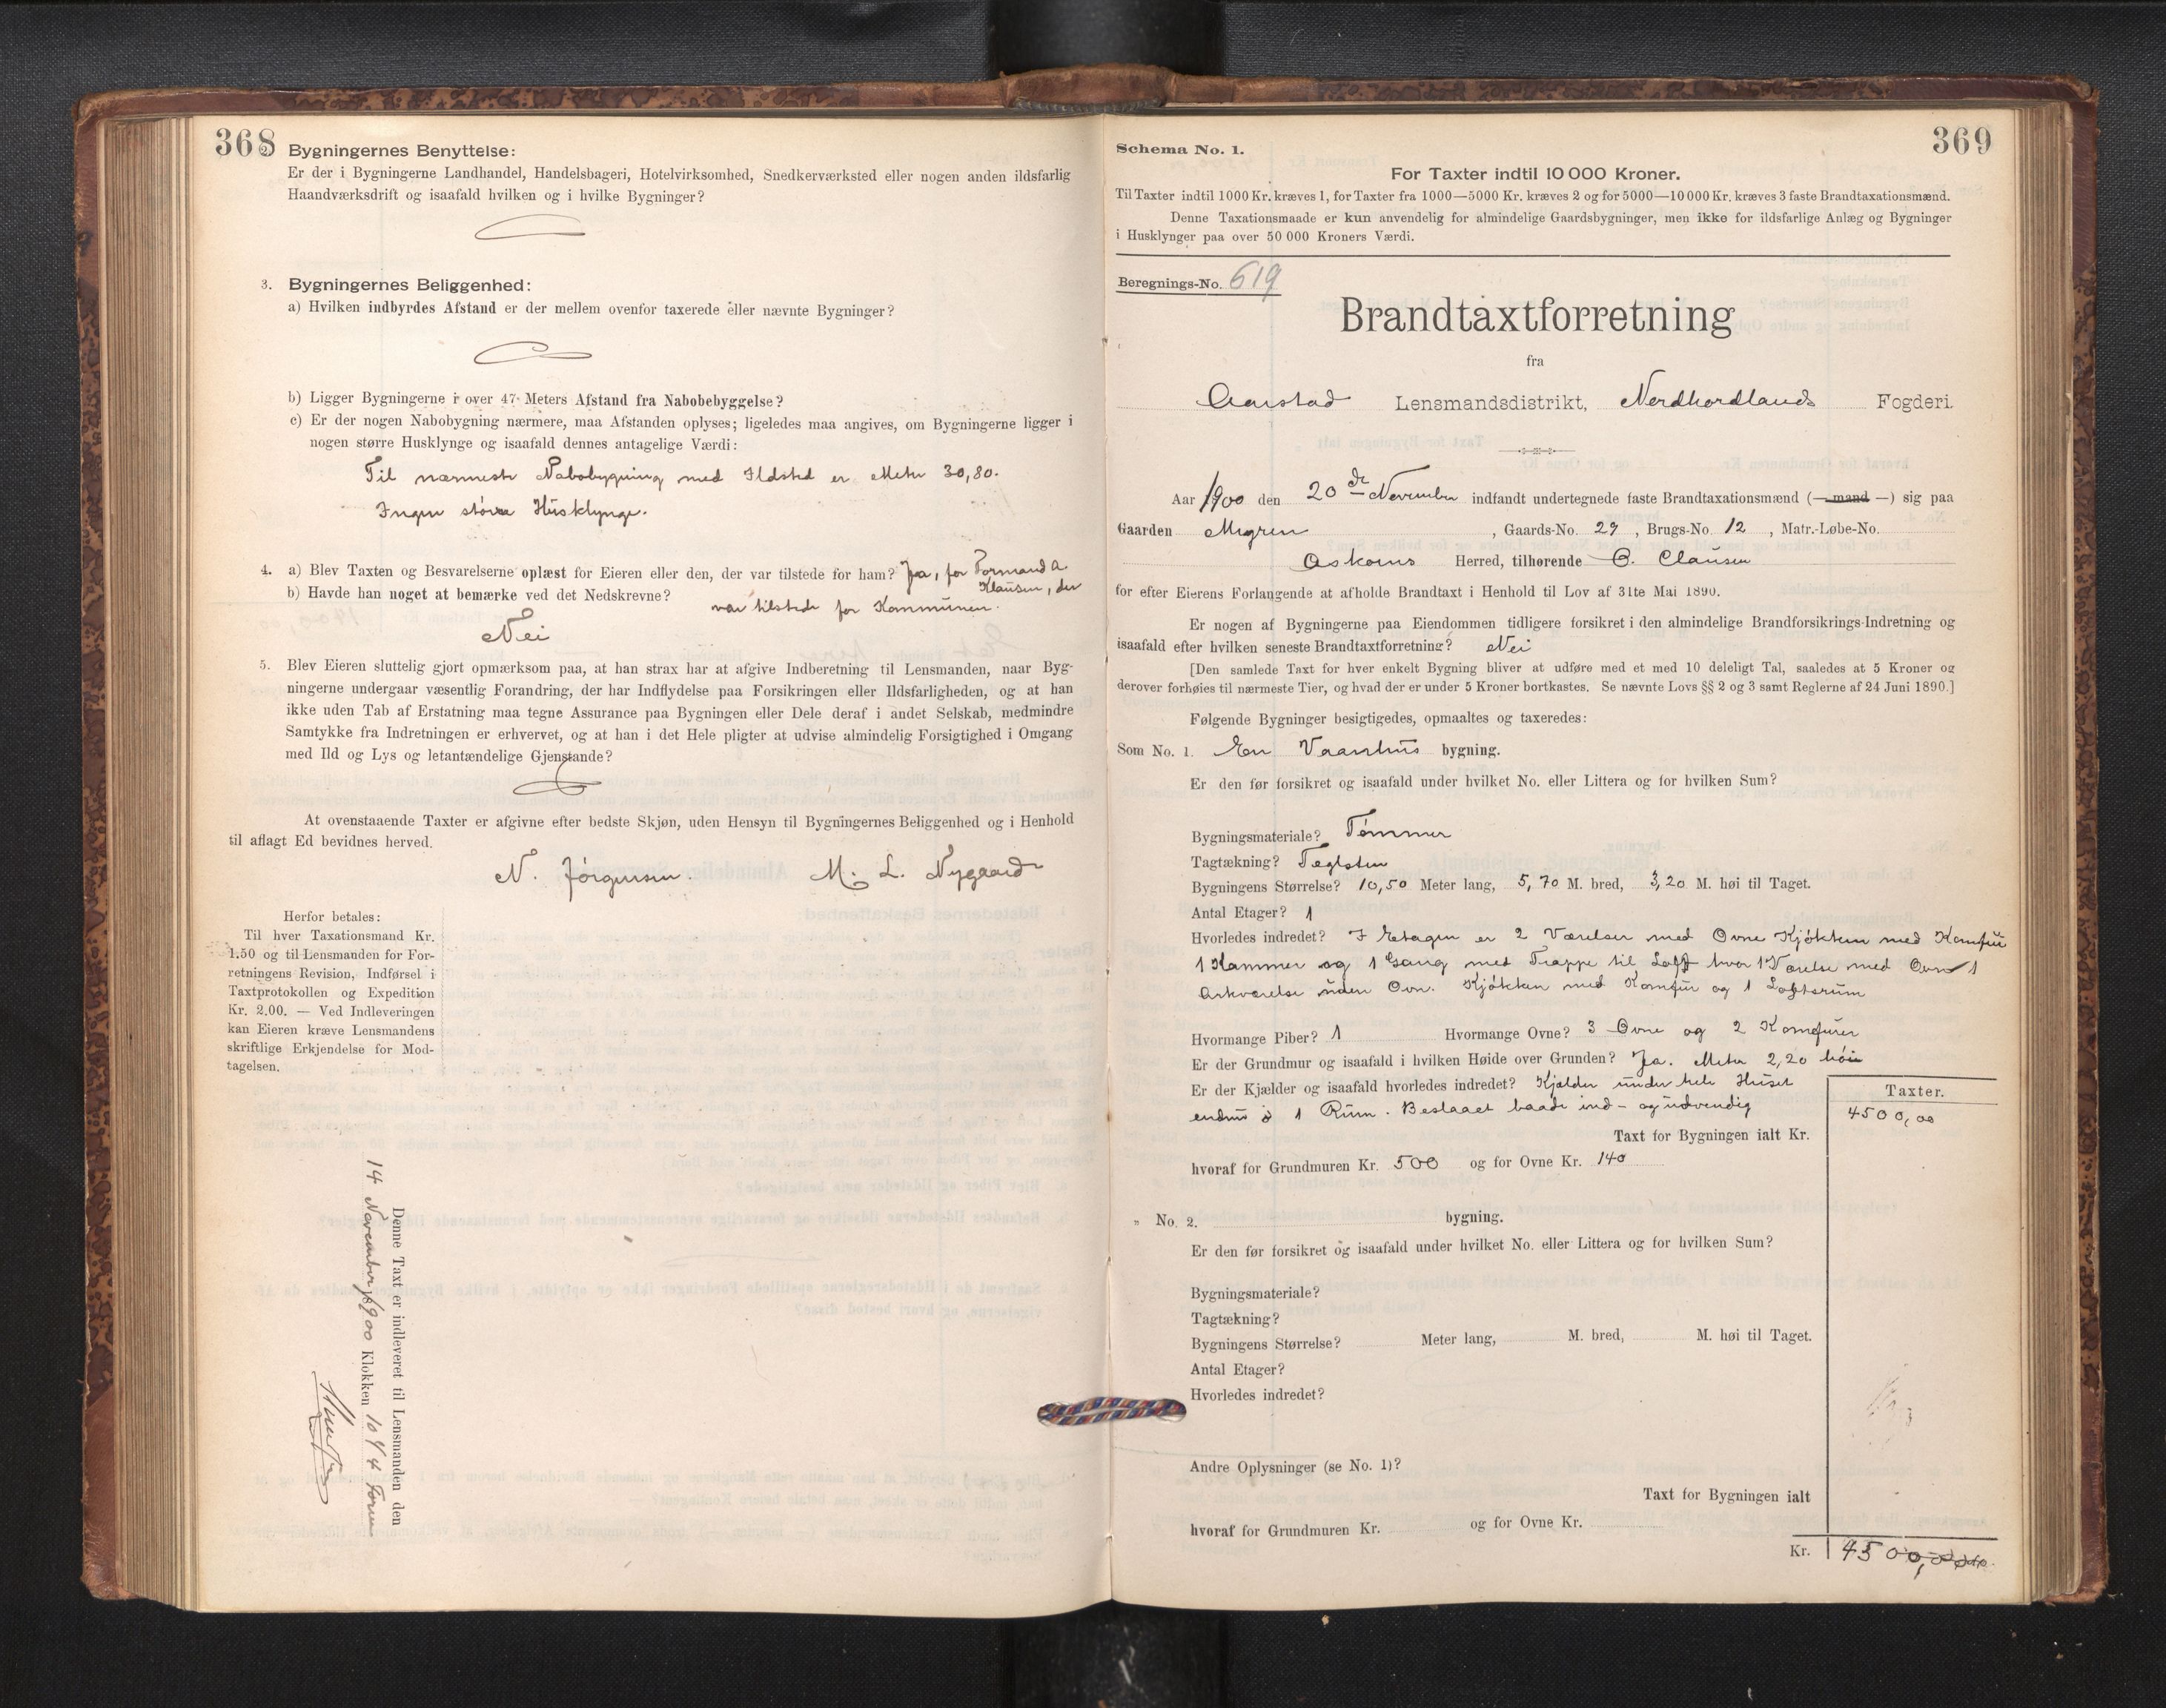 368
2. Bygningernes Benyttelse:
Er der i Bygningerne Landhandel, Handelsbageri, Hotelvirksomhed, Snedkerværksted eller nogen anden ildsfarlig
Haandværksdrift og isaafald hvilken og i hvilke Bygninger?
3. Bygningernes Beliggenhed:
a) Hvilken indbyrdes Afstand er der mellem ovenfor taxerede eller nævnte Bygninger?
b) Ligger Bygningerne i over 47 Meters Afstand fra Nabobebyggelse?
c) Er der nogen Nabobygning nærmere, maa Afstanden oplyses; ligeledes maa angives, om Bygningerne ligger i
nogen større Husklynge og isaafald dennes antagelige Værdi:
Til nærmeste Nabobygning med Ildsted er Meter 30,80.
Ingen større Husklynge.
4. a) Blev Taxten og Besvarelserne oplæst for Eieren eller den, der var tilstede for ham? Ja, for Formand A.
Klausen, der
b) Havde han noget at bemærke ved det Nedskrevne? var tilstede for Kommunen.
Nei
5. Blev Eieren sluttelig gjort opmærksom paa, at han strax har at afgive Indberetning til Lensmanden, naar Byg-
ningerne undergaar væsentlig Forandring, der har Indflydelse paa Forsikringen eller Ildsfarligheden, og at han
ikke uden Tab af Erstatning maa tegne Assurance paa Bygningen eller Dele deraf i andet Selskab, medmindre
Samtykke fra Indretningen er erhvervet, og at han i det Hele pligter at udvise almindelig Forsigtighed i Omgang
med Ild og Lys og letantændelige Gjenstande?
At ovenstaaende Taxter er afgivne efter bedste Skjøn, uden Hensyn til Bygningernes Beliggenhed og i Henhold
til aflagt Ed bevidnes herved.
N. Jörgensen. M. L. Nygaard
Herfor betales:
Til hver Taxationsmand Kr.
1.50 og til Lensmanden for For-
retningens Revision, Indførsel i
Taxtprotokollen og Expedition
Kr. 2.00. — Ved Indleveringen
kan Eieren kræve Lensmandens
skriftlige Erkjendelse for Mod-
tagelsen.
Denne Taxt er indleveret til Lensmanden den
14 November 1900 Klokken 10 1/4 Form
369
Schema No. 1.
For Taxter indtil 10 000 Kroner.
Til Taxter indtil 1000 Kr. kræves 1, for Taxter fra 1000—5000 Kr. kræves 2 og for 5000—10 000 Kr. kræves 3 faste Brandtaxationsmænd.
Denne Taxationsmaade er kun anvendelig for almindelige Gaardsbygninger, men ikke for ildsfarlige Anlæg og Bygninger
i Husklynger paa over 50 000 Kroners Værdi.
Beregnings-No. 619
Brandtaxtforretning
fra
Aarstad Lensmandsdistrikt, Nordhordlands Fogderi.
Aar 1900 den 20de November indfandt undertegnede faste Brandtaxationsmænd (— mand —) sig paa
Gaarden Mygren, Gaards-No. 29, Brugs-No. 12, Matr.-Løbe-No.
Askøens Herred, tilhørende C. Clausen
for efter Eierens Forlangende at afholde Brandtaxt i Henhold til Lov af 31te Mai 1890.
Er nogen af Bygningerne paa Eiendommen tidligere forsikret i den almindelige Brandforsikrings-Indretning og
isaafald efter hvilken seneste Brandtaxtforretning? Nei
[Den samlede Taxt for hver enkelt Bygning bliver at udføre med et med 10 deleligt Tal, saaledes at 5 Kroner og
derover forhøies til nærmeste Tier, og hvad der er under 5 Kroner bortkastes. Se nævnte Lovs §§ 2 og 3 samt Reglerne af 24 Juni 1890.]
Følgende Bygninger besigtigedes, opmaaltes og taxeredes:
Som No. 1. En Vaanhus bygning.
Er den før forsikret og isaafald under hvilket No. eller Littera og for hvilken Sum?
Bygningsmateriale? Tømmer
Tagtækning? Teglsten
Bygningens Størrelse? 10,50 Meter lang, 5,70 M. bred, 3,20 M. høi til Taget.
Antal Etager? 1
Hvorledes indredet? I Etagen er 2 Værelser med Ovne Kjøkken med Komfür
1 Kammer og 1 Gang med Trappe til Loft hvor 1 Værelse med Ovn 1
Arkværelse uden Ovn. Kjøkken med Komfür og 1 Loftsrum
Hvormange Piber? 1 Hvormange Ovne? 3 Ovne og 2 Komfürer
Er der Grundmur og isaafald i hvilken Høide over Grunden? Ja. Meter 2,20 höi
Er der Kjælder og isaafald hvorledes indredet? Kjælder under hele Huset
endnu i 1 Rum. Beslaaet baade ind- og udvendig
Taxter.
4500,00
Taxt for Bygningen ialt Kr.
hvoraf for Grundmuren Kr. 500 og for Ovne Kr. 140
" No. 2. bygning.
Er den før forsikret og isaafald under hvilket No. eller Littera og for hvilken Sum?
Bygningsmateriale?
Tagtækning?
Bygningens Størrelse? Meter lang, M. bred, M. høi til Taget.
Antal Etager?
Hvorledes indredet?
Andre Oplysninger (se No. 1)?
Taxt for Bygningen ialt
hvoraf for Grundmuren Kr. og for Ovne Kr.
Kr. 4500,00